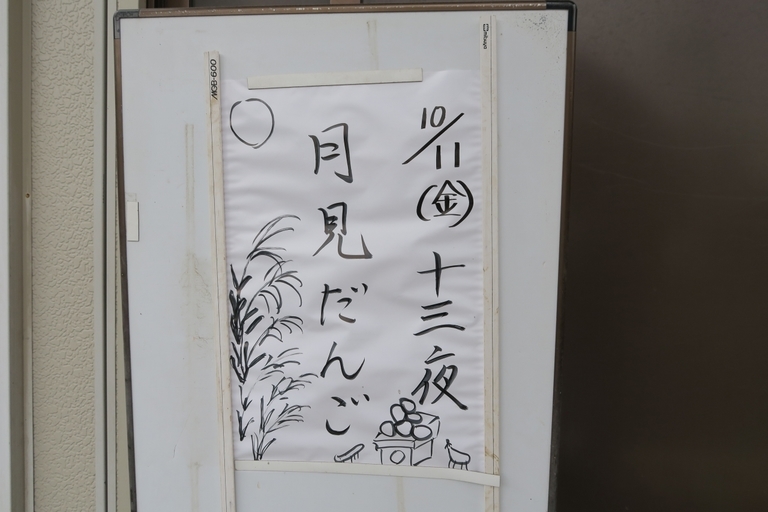 10/11
(金)
十三夜
月見だんご
MGB-600